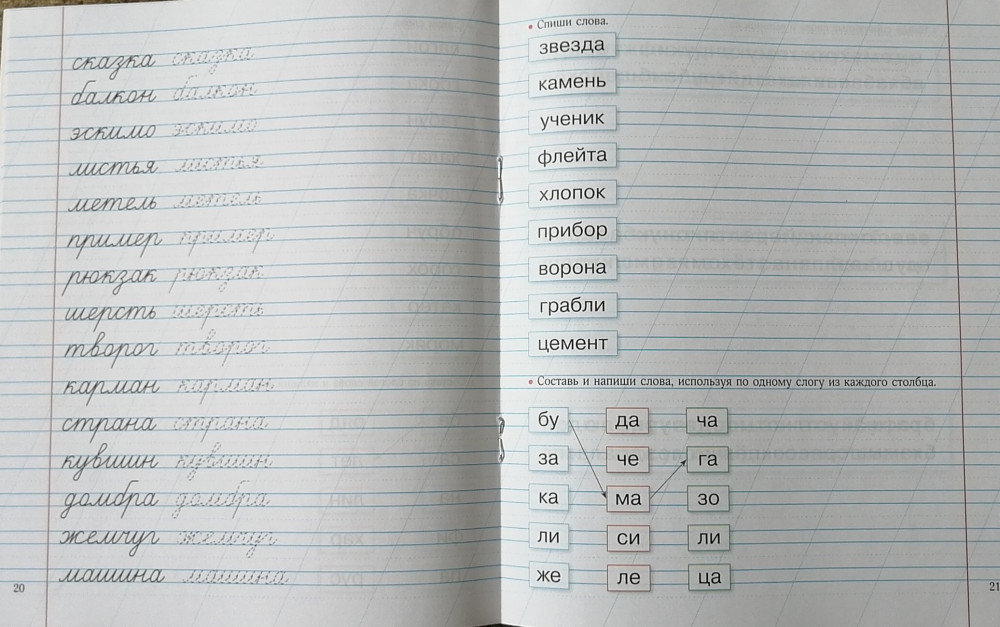 сказка сказка
балкон балкон
эскимо эскимо
листья листья
метель метель
пример пример
рюкзак рюкзак
шерсть шерсть
творог творог
карман карман
страна страна
кувшин кувшин
домбра домбра
жемчуг жемчуг
машина машина
20
• Спиши слова.
звезда
камень
ученик
флейта
хлопок
прибор
ворона
грабли
цемент
• Составь и напиши слова, используя по одному слогу из каждого столбца.
бу да ча
за че га
ка ма зо
ли си ли
же ле ца
21